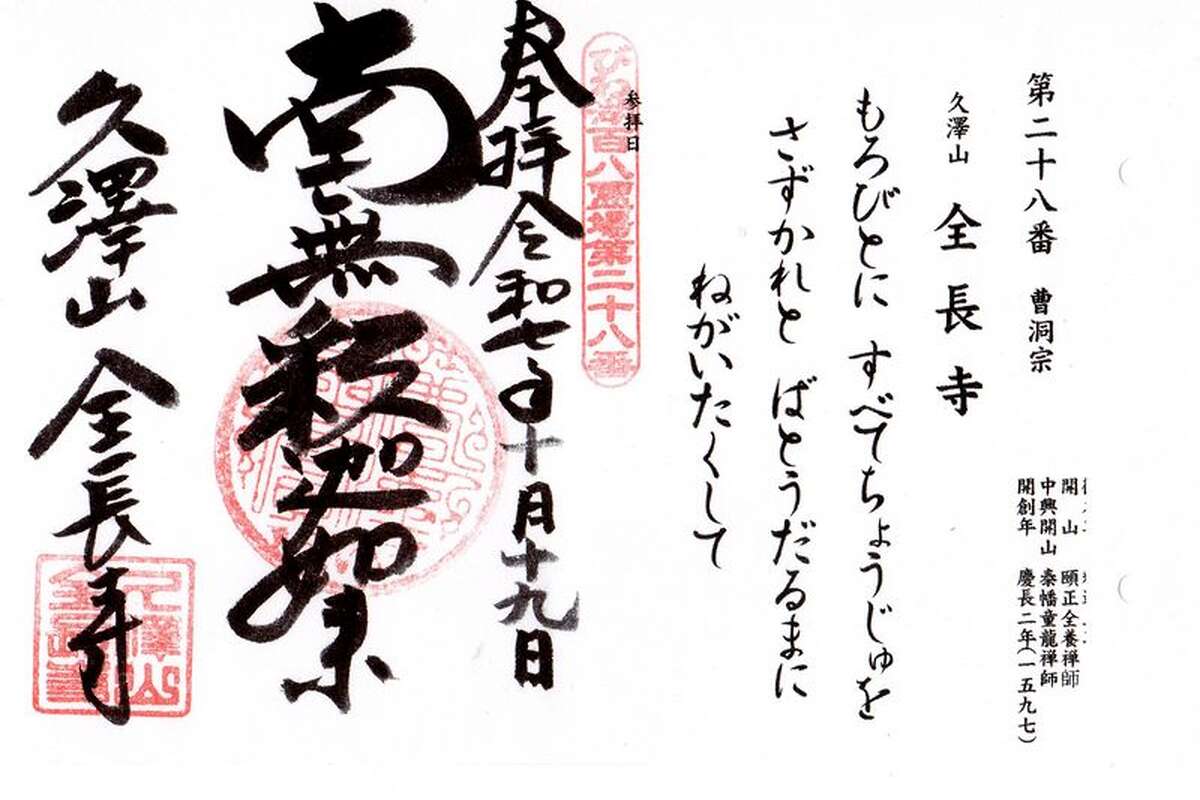 第二十八番 曹洞宗
開山 頤正全養禅師
中興開山 秦幡童龍禅師
開創年 慶長二年(一五九七)
久澤山 全長寺
もろびとに すべてちょうじゅを
さずかれと ばとうだるまに
ねがいたくして
参拝日
びわ湖百八霊場第二十八番
奉拝 令和七年十月十九日
南無釈迦如来
久澤山 全長寺